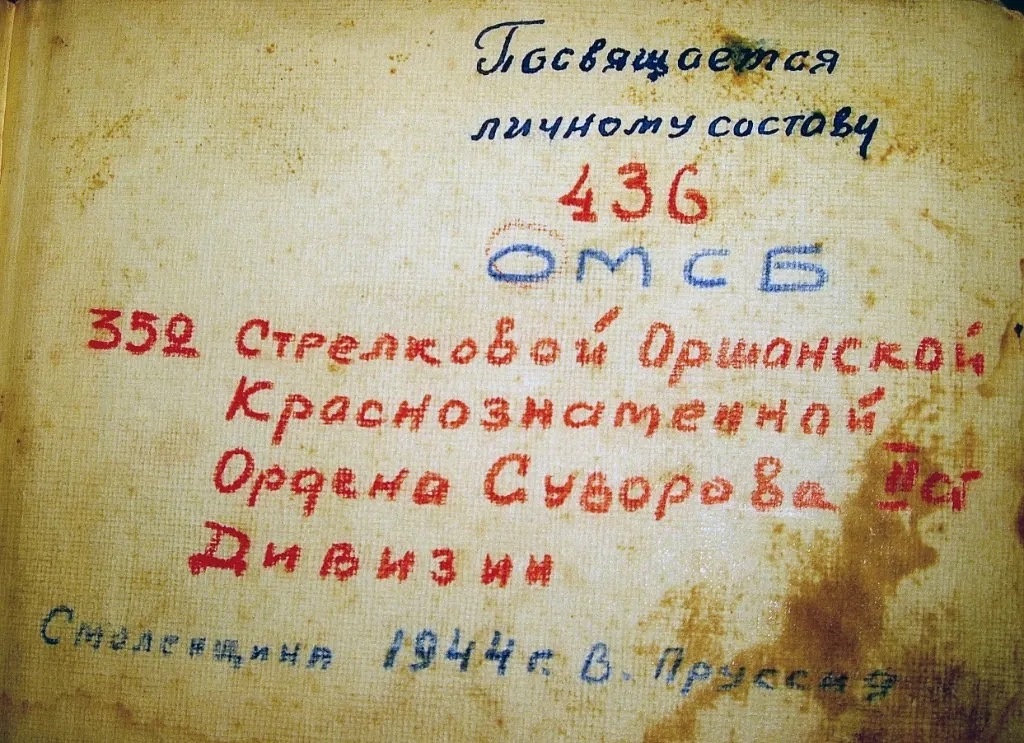 Посвящается
личному составу
436
ОМСБ
352 Стрелковой Оршанской
Краснознаменной
Ордена Суворова II ст
Дивизии
Смоленщина 1944 г. В. Пруссия